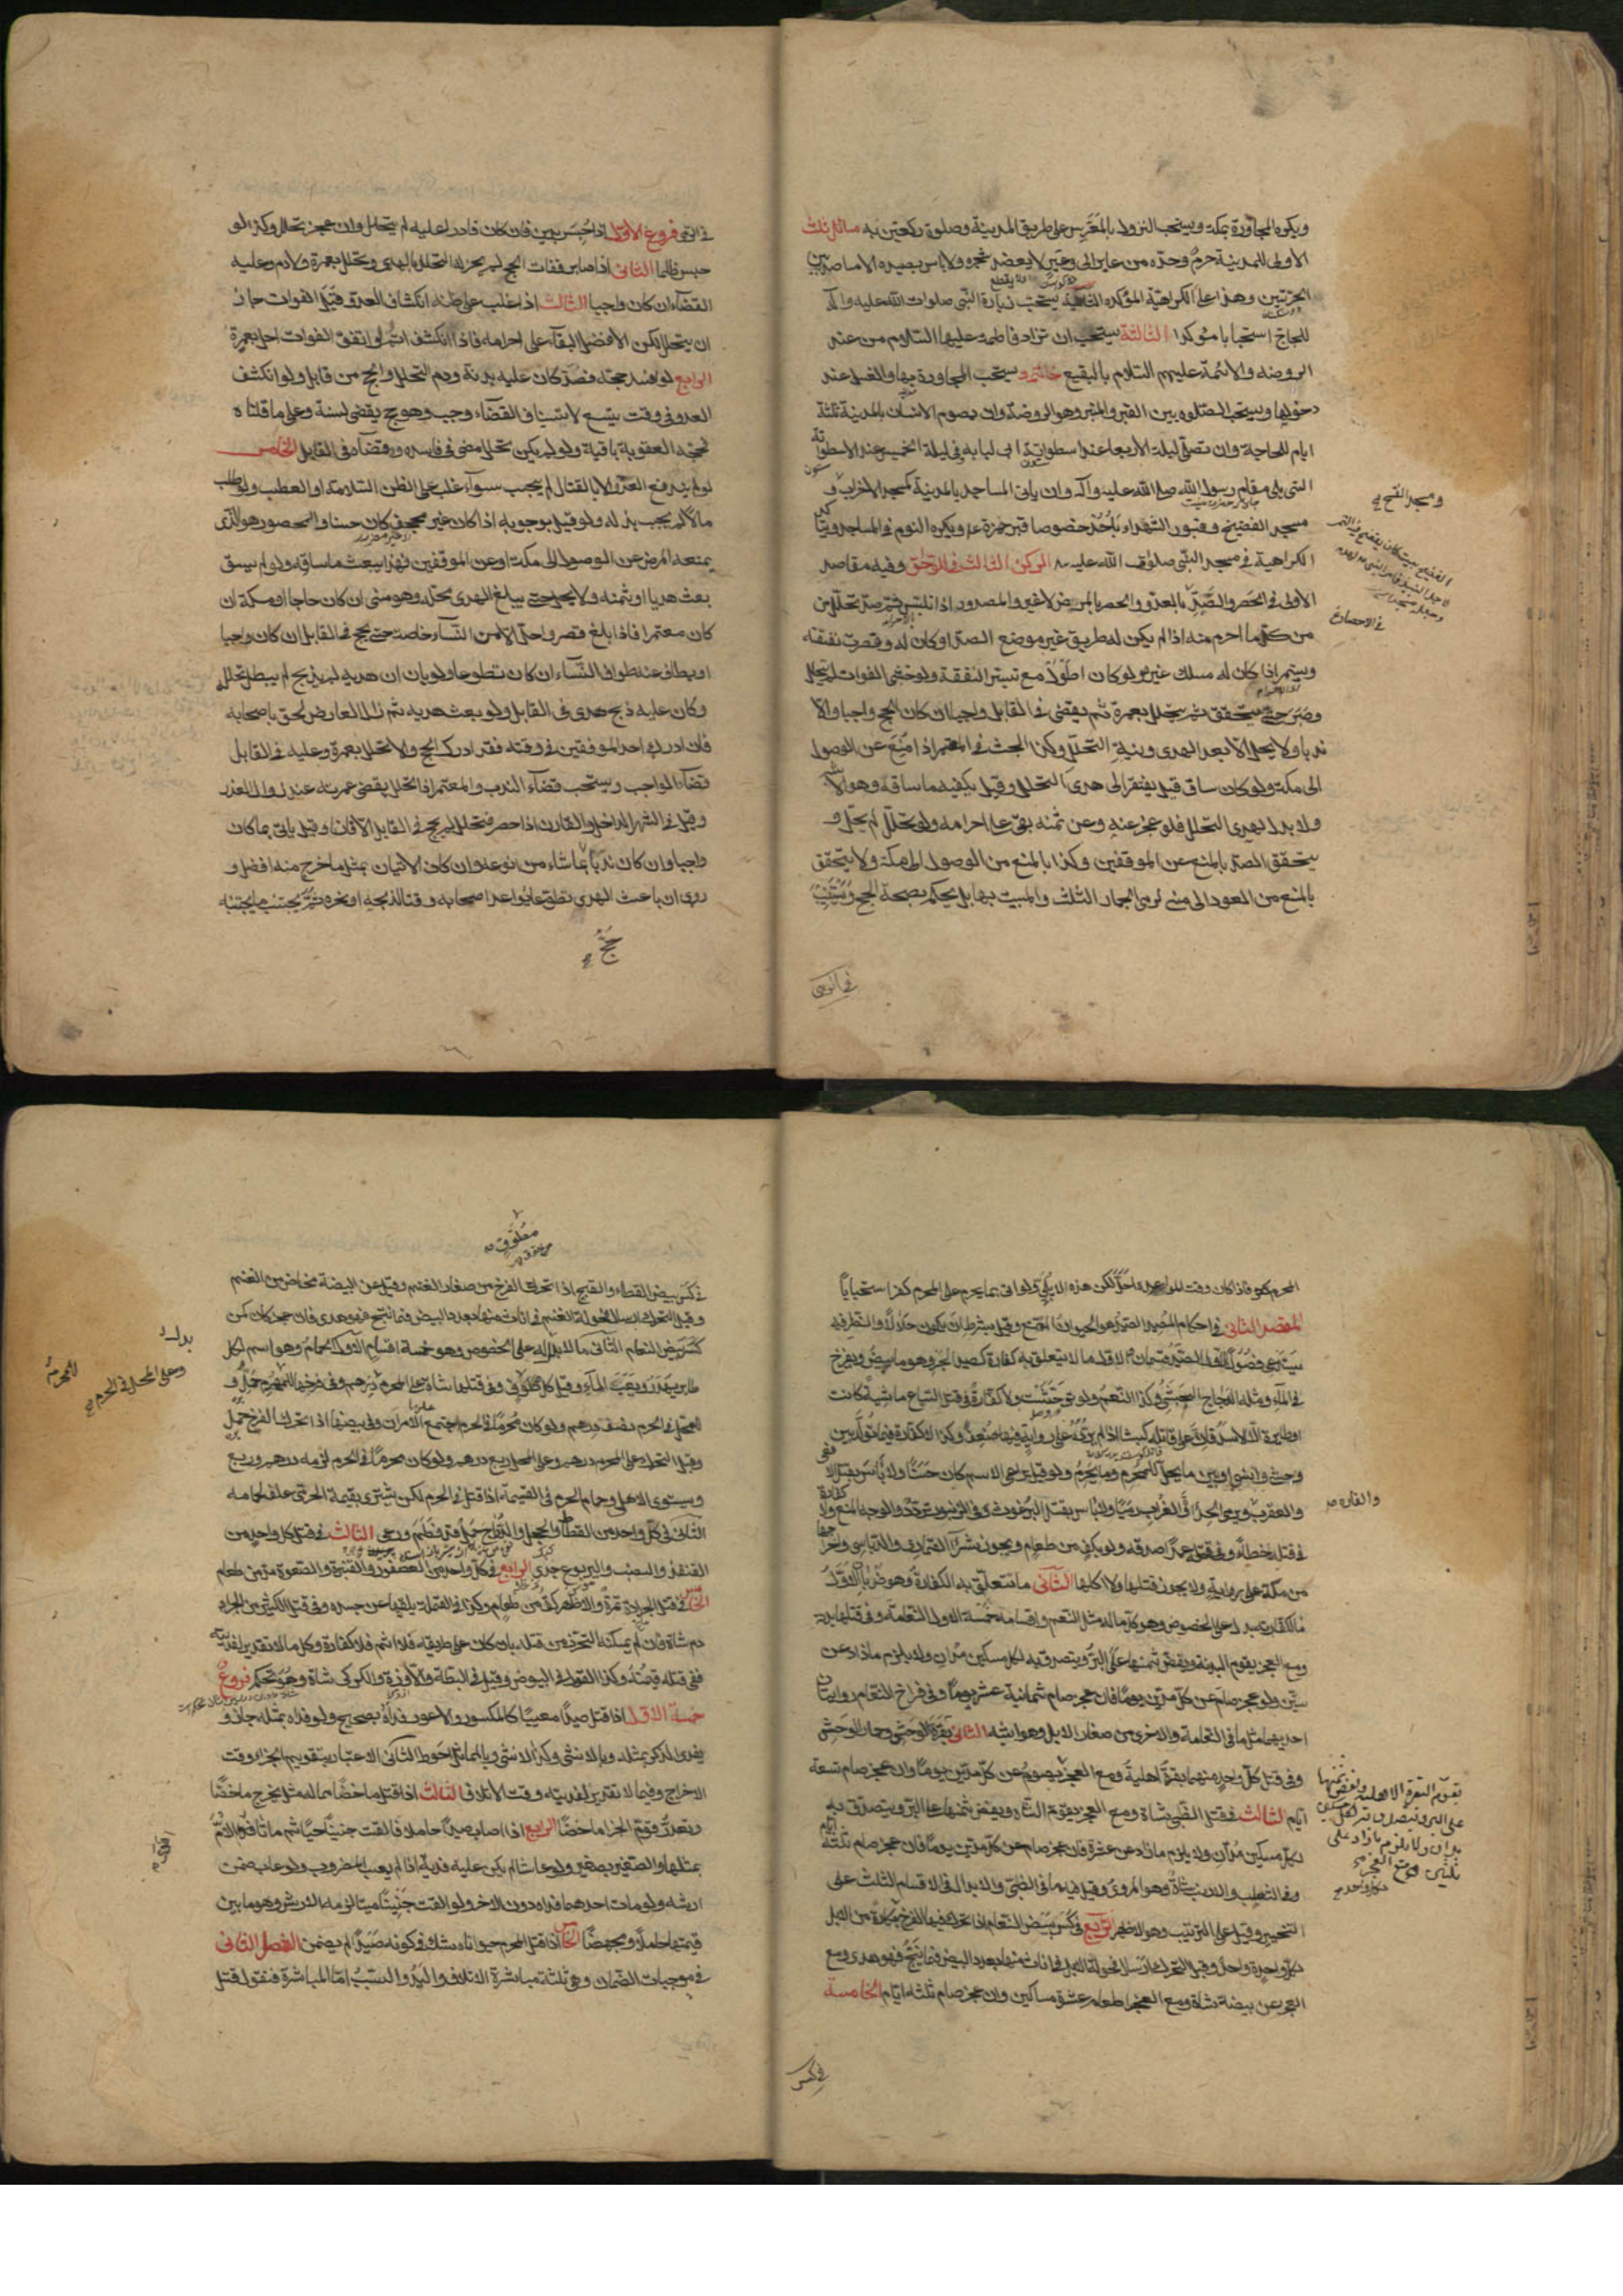 ويكره المجاورة بمكة ويستحب النزول بالمعرس على طريق المدينة وصلوة ركعتين به مسائل ثلث
الاولى للمدينة حرم وحده من عاير الى وعير لا يعضد شجره ولا باس بصيده الا ما صيد بين
الحرتين وهذا على الكراهية المؤكدة الثانية يستحب زيارة النبى صلوات الله عليه وآله
للحاج استحبابا مؤكدا الثالثة يستحب ان تزار فاطمة عليها السلام من عند
الروضة والائمة عليهم السلام بالبقيع خاتمة ويستحب المجاورة بها والغسل عند
دخولها ويستحب الصلوة بين القبر والمنبر وهو الروضة وان يصوم الانسان بالمدينة ثلثة
ايام للحاجة وان تصلى ليلة الاربعا عند اسطوانة ابى لبابه وفى ليلة الخميس عند الاسطوانة
التى يلى مقام رسول الله صلى الله عليه وآله وان ياتى المساجد بالمدينة كمسجد الاحزاب و
مسجد الفضيخ وقبور الشهداء بأحد خصوصا قبر حمزة ع ويكره النوم فى المساجد ويتأكد
الكراهية فى مسجد النبى صلوات الله عليه الركن الثالث فى اللواحق وفيه مقاصد
الاول فى الحصر والصد الصد بالعدو والحصر بالمرض لا غير والمصدود اذا تلبس ثم صد تحلل من
من كل ما احرم منه اذا لم يكن له طريق غير موضع الصد او كان له وقصرت نفقته
ويستمر اذا كان له مسلك غيره ولو كان اطول مع تيسر النفقة ولو خشى الفوات لم يتحلل
وصبر حتى يتحقق ثم يتحلل بعمرة ثم يقضى فى القابل واجبا ان كان الحج واجبا والا
ندبا ولا يحل الا بعد الهدى ونية التحلل وكذا البحث فى المعتمر اذا منع عن الوصول
الى مكة ولو كان ساق قيل يفتقر الى هدى التحلل وقيل يكفيه ما ساقه وهو الاشبه
ولا بدل لهدى التحلل فلو عجز عنه وعن ثمنه بقى على احرامه ولو تحلل لم يحل و
يتحقق الصد بالمنع عن الموقفين وكذا بالمنع من الوصول الى مكة ولا يتحقق
بالمنع من العود الى منى لرمى الجمار الثلث والمبيت بها بل يحكم بصحة الحج ويستنيب
فى الرمى
ومسجد الفتح
فى الرمى فروع الاول اذا حبس بدين فان كان قادرا عليه لم يتحلل وان عجز تحلل وكذا لو
حبس ظلما الثانى اذا صابر ففات الحج لم يجز له التحلل بالهدى وتحلل بعمرة ولا دم وعليه
القضاء ان كان واجبا الثالث اذا غلب على ظنه انكشاف العدو قبل الفوات جاز
ان يتحلل لكن الافضل البقاء على احرامه فاذا انكشف اتم ولو اتفق الفوات احل بعمرة
الرابع لو افسد حجه فصد كان عليه بدنة ودم التحلل والحج من قابل ولو انكشف
العدو فى وقت يتسع لاستيناف القضاء وجب وهو حج يقضى لسنة وعلى ما قلناه
فحجة العقوبة باقية ولو لم يكن تحلل مضى فى فاسده وقضاه فى القابل الخامس
لو لم يندفع العدو الا بالقتال لم يجب سواء غلب على الظن السلامة او العطب ولو طلب
مالا لم يجب بذله ولو قيل بوجوبه اذا كان غير مجحف كان حسنا والمحصور هو الذى
يمنعه المرض عن الوصول الى مكة او عن الموقفين فهذا يبعث ما ساقه ولو لم يسق
بعث هديا او ثمنه ولا يحل حتى يبلغ الهدى محله وهو منى ان كان حاجا او مكة ان
كان معتمرا فاذا بلغ قصر واحل الا من النساء خاصة حتى يحج فى القابل ان كان واجبا
او يطاف عنه طواف النساء ان كان تطوعا ولو بان ان هديه لم يذبح لم يبطل تحلله
وكان عليه ذبح هدى فى القابل ولو بعث هديه ثم زال العارض لحق باصحابه
فان ادرك احد الموقفين فى وقته فقد ادرك الحج والا تحلل بعمرة وعليه فى القابل
قضاء الواجب ويستحب قضاء الندب والمعتمر اذا تحلل يقضى عمرته عند زوال العذر
وقيل فى الشهر الداخل والقارن اذا احصر فتحلل لم يحج فى القابل الا قارنا وقيل ياتى بما كان
واجبا وان كان ندبا بما شاء من انواعه وان كان الاتيان بمثل ما خرج منه افضل و
روى ان باعث الهدى تطوعا يواعد اصحابه وقتا لذبحه او نحره ثم يجتنب ما يجتنبه
المحرم فاذا كان وقت المواعدة احل لكن هذا لا يلبى ولو اتى بما يحرم على المحرم كفر استحبابا
المقصد الثانى فى احكام الصيد الصيد هو الحيوان الممتنع وقيل بشرط ان يكون حلالا والنظر فيه
يستدعى فصولا الاول الصيد قسمان الاول ما لا يتعلق به كفارة كصيد البحر وهو ما يبيض ويفرخ
فى الماء ومثله الدجاج الحبشى وكذا النعم ولو توحشت ولا كفارة فى قتل السباع ماشية كانت
او طايرة الا الاسد فان على قاتله كبشا اذا لم يرده على رواية فيها ضعف وكذا لا كفارة فيما تولد بين
وحشى وانسى او بين ما يحل للمحرم وما يحرم ولو قيل يراعى الاسم كان حسنا ولا بأس بقتل الافعى
والعقرب ويرمى الحدأة والغراب رميا ولا بأس بقتل البرغوث وفى الزنبور تردد والوجه المنع ولا كفارة
فى قتله خطاء وفى قتله عمدا صدقة ولو بكف من طعام ويجوز شراء القمارى والدباسى واخراجها
من مكة على رواية ولا يجوز قتلها ولا اكلها الثانى ما تتعلق به الكفارة وهو ضربان الاول
ما لكفارته بدل على الخصوص وهو كل ما له مثل من النعم واقسامه خمسة الاول النعامة وفى قتلها بدنة
ومع العجز يقوم البدنة ويفض ثمنها على البر ويتصدق به لكل مسكين مدان ولا يلزم ما زاد عن
ستين ولو عجز صام عن كل مدين يوما فان عجز صام ثمانية عشر يوما وفى فراخ النعام روايتان
احديهما مثل ما فى النعامة والاخرى من صغار الابل وهو اشبه الثانى بقرة الوحش وحمار الوحش
وفى قتل كل واحد منهما بقرة اهلية ومع العجز يصوم عن كل مدين يوما وان عجز صام تسعة
ايام الثالث فى قتل الظبى شاة ومع العجز يقوم الشاة ويفض ثمنها على البر ويتصدق به
لكل مسكين مدان ولا يلزم ما زاد عن عشرة فان عجز صام عن كل مدين يوما فان عجز صام ثلثة ايام
وفى الثعلب والارنب شاة وهو المروى وقيل فيه ما فى الظبى والابدال فى الاقسام الثلث على
التخيير وقيل على الترتيب وهو الاظهر الرابع فى كسر بيض النعام اذا تحرك فيها الفرخ بكارة من الابل
لكل واحدة واحد وقبل التحرك ارسال فحولة الابل فى اناث منها بعدد البيض فما نتج فهو هدى ومع
العجز عن كل بيضة شاة ومع العجز اطعام عشرة مساكين وان عجز صام ثلثة ايام الخامسة
فى كسر
والفاره
يقوم البقرة الاهلية ويفض ثمنها
على البر ويتصدق به لكل مسكين
مدان ولا يلزم ما زاد على
ثلثين ومع العجز
فى كسر بيض القطاء والقبج اذا تحرك الفرخ من صغار الغنم وقيل عن البيضة مخاض من الغنم
وقبل التحرك ارسال فحولة الغنم فى اناث منها بعدد البيض فما نتج فهو هدى فان عجز كان كمن
كسر بيض النعام الثانى ما لا بدل له على الخصوص وهو خمسة اقسام الاول الحمام وهو اسم لكل
طاير يهدر ويعب الماء وقيل كل مطوق وفى قتلها شاة على المحرم وفى فرخها للمحرم حمل و
للمحل فى الحرم نصف درهم ولو كان محرما فى الحرم اجتمع عليه الامران وفى بيضها اذا تحرك الفرخ حمل
وقبل التحرك على المحرم درهم وعلى المحل ربع درهم ولو كان محرما فى الحرم لزمه درهم وربع
ويستوى الاهلى وحمام الحرم فى القيمة اذا قتل فى الحرم لكن يشترى بقيمة الحرمى علف لحمامه
الثانى فى كل واحد من القطا والحجل والدراج حمل قد فطم ورعى الثالث فى قتل كل واحد من
القنفذ والضب واليربوع جدى الرابع فى كل واحد من العصفور والقنبرة والصعوة مد من طعام
الخامس فى قتل الجرادة تمرة والاظهر كف من طعام وكذا فى القملة يلقيها عن جسده وفى قتل الكثير من الجراد
دم شاة وان لم يمكنه التحرز من قتله بان كان على طريقه فلا اثم ولا كفارة وكل ما لا تقدير لفديته
ففى قتله قيمته وكذا القول فى البيوض وقيل فى البطة والاوزة والكركى شاة وهو تحكم فروع
خمسة الاول اذا قتل صيدا معيبا كالمكسور والاعور فداه بصحيح ولو فداه بمثله جاز و
يفدى الذكر بمثله وبالانثى وكذا الانثى وبالمماثل احوط الثانى الاعتبار بتقويم الجزاء وقت
الاخراج وفيما لا تقدير لفديته وقت الاتلاف الثالث اذا قتل ماخضا مما له مثل يخرج ماخضا
ولو تعذر قوم الجزاء ماخضا الرابع اذا اصاب صيدا حاملا فالقت جنينا حيا ثم ماتا فدى الام
بمثلها والصغير بصغير ولو عاشا لم يكن عليه فدية اذا لم يعب المضروب ولو عاب ضمن
ارشه ولو مات احدهما فداه دون الاخر ولو القت جنينا ميتا لزمه الارش وهو ما بين
قيمتها حاملا ومجهضا الخامس اذا قتل المحرم حيوانا وشك فى كونه صيدا لم يضمن الفصل الثانى
فى موجبات الضمان وهى ثلثة مباشرة الاتلاف واليد والسبب اما المباشرة فنقول قتل
وعلى المحل فى الحرم